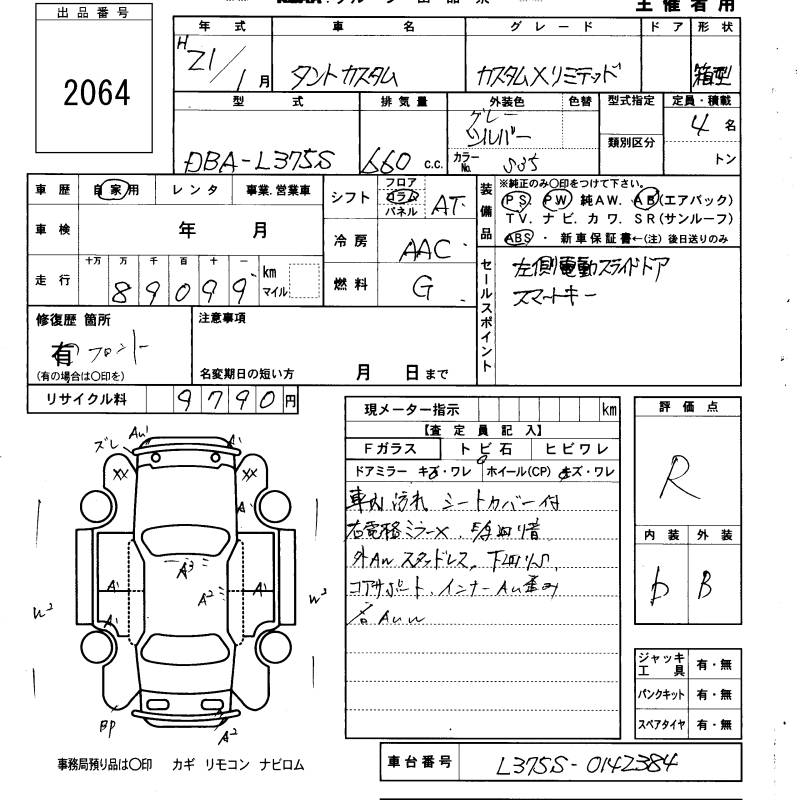 主催者用
出品番号
2064
年式 車名 グレード ドア 形状
H21/1月 タントカスタム カスタムXリミテッド 箱型
型式 排気量 外装色 色替 型式指定 定員・積載
グレー
シルバー
4名
類別区分
DBA-L375S 660 c.c. カラーNo. S35 トン
車歴 自家用 レンタ 事業.営業車
シフト フロア コラム パネル AT
装備品 ※純正のみ○印をつけて下さい。
PS PW 純AW. AB(エアバック)
TV. ナビ. カワ. SR(サンルーフ)
ABS ・ 新車保証書←(注) 後日送りのみ
車検 年 月
冷房 AAC
走行 十万 万 千 百 十 一 km マイル
89099
燃料 G
セールスポイント
左側電動スライドドア
スマートキー
修復歴 箇所
有 フロント
(有の場合は○印を)
注意事項
名変期日の短い方 月 日まで
リサイクル料 9790円
現メーター指示 km
【査定員記入】
Fガラス トビ石 ヒビワレ
ドアミラー キズ・ワレ ホイール(CP) キズ・ワレ
車内汚れ シートカバー付
右電格ミラー×.
外AW スタッドレス.
コアサポート. インナーAU歪み
評価点
R
内装 外装
D B
ジャッキ工具 有・無
パンクキット 有・無
スペアタイヤ 有・無
ズレ AU' A'
XX XX
A'
A3
A' A2 A'
W2 A' W2
凹 A2
事務局預り品は○印 カギ リモコン ナビロム
車台番号 L375S-0142384